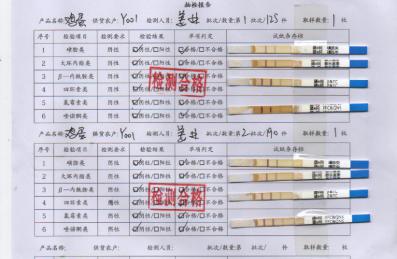 抽检报告
产品名称: 鸡蛋 供货农户: Y001 检测人员: 批次/数量:第1批次/125件 取样数量: 1 枚
序号 检验项目 检测要求 检验结果 单项判定 试纸条存档
1 磺胺类 阴性 ☑阴性/口阳性 ☑合格/口不合格
2 大环内酯类 阴性 ☑阴性/口阳性 ☑合格/口不合格
3 β-内酰胺类 阴性 ☑阴性/口阳性 ☑合格/口不合格
4 四环素类 阴性 ☑阴性/口阳性 ☑合格/口不合格
5 氟霉素类 阴性 ☑阴性/口阳性 ☑合格/口不合格
6 喹诺酮类 阴性 ☑阴性/口阳性 ☑合格/口不合格
检测合格
产品名称: 鸡蛋 供货农户: Y001 检测人员: 批次/数量:第2批次/190件 取样数量: 1 枚
序号 检验项目 检测要求 检验结果 单项判定 试纸条存档
1 磺胺类 阴性 ☑阴性/口阳性 ☑合格/口不合格
2 大环内酯类 阴性 ☑阴性/口阳性 ☑合格/口不合格
3 β-内酰胺类 阴性 ☑阴性/口阳性 ☑合格/口不合格
4 四环素类 阴性 ☑阴性/口阳性 ☑合格/口不合格
5 氟霉素类 阴性 ☑阴性/口阳性 ☑合格/口不合格
6 喹诺酮类 阴性 ☑阴性/口阳性 ☑合格/口不合格
检测合格
产品名称: 供货农户: 检测人员: 批次/数量:第 批次/ 件 取样数量: 枚